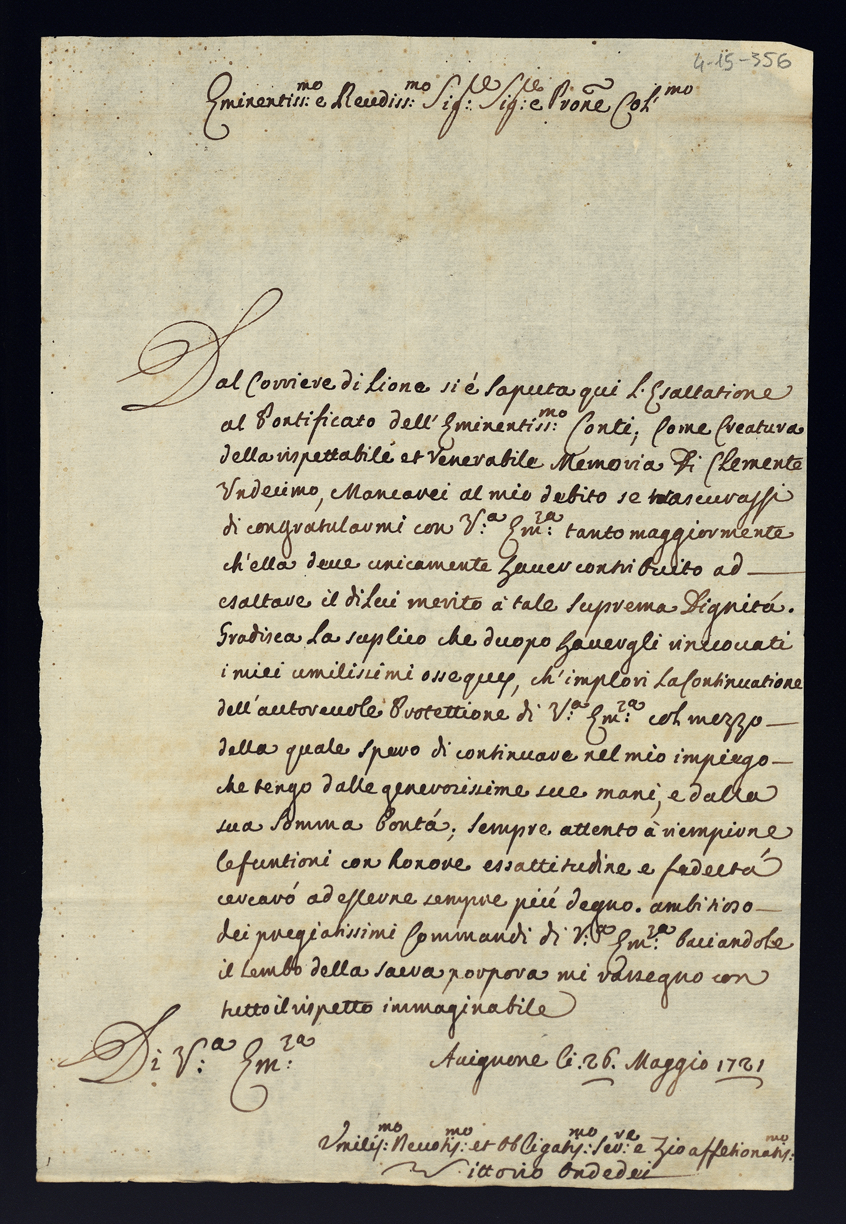 4-15-356
Eminentiss:mo e Reudiss:mo Sig:re Sig:re e Prone Col:mo
Dal Corriere di Lione si é saputa qui l'Esaltatione
al Pontificato dell'Eminentiss:mo Conti; Come Creatura
della rispettabile et venerabile Memoria Di Clemente
Undecimo, Mancarei al mio debito se trascurassi
di congratularmi con V:a Em:za tanto maggiormente
ch'ella deue unicamente hauer contribuito ad
esaltare il di lui merito à tale suprema Dignitá.
Gradisca la suplico che duopo hauergli rinnouati
i miei umilissimi ossequy, ch'implori la Continuatione
dell'autoreuole Protettione di V:a Em:za col mezzo
della quale spero di continuare nel mio impiego
che tengo dalle generosissime sue mani, e dalla
sua somma bontá; sempre attento à riempirne
le funtioni con honore essattitudine e fedeltá
cercaró ad esserne sempre piú degno. ambitioso
dei pregiatissimi Commandi di V:a Em:za baciandole
il lembo della sacra porpora mi rassegno con
tutto il rispetto immaginabile
Di V:a Em:za
Auignone li. 26. Maggio 1721
Umiliss:mo Deuotiss:mo et Obligatiss:mo Ser:re e Zio affetionatiss:mo
Vittorio Ondedei